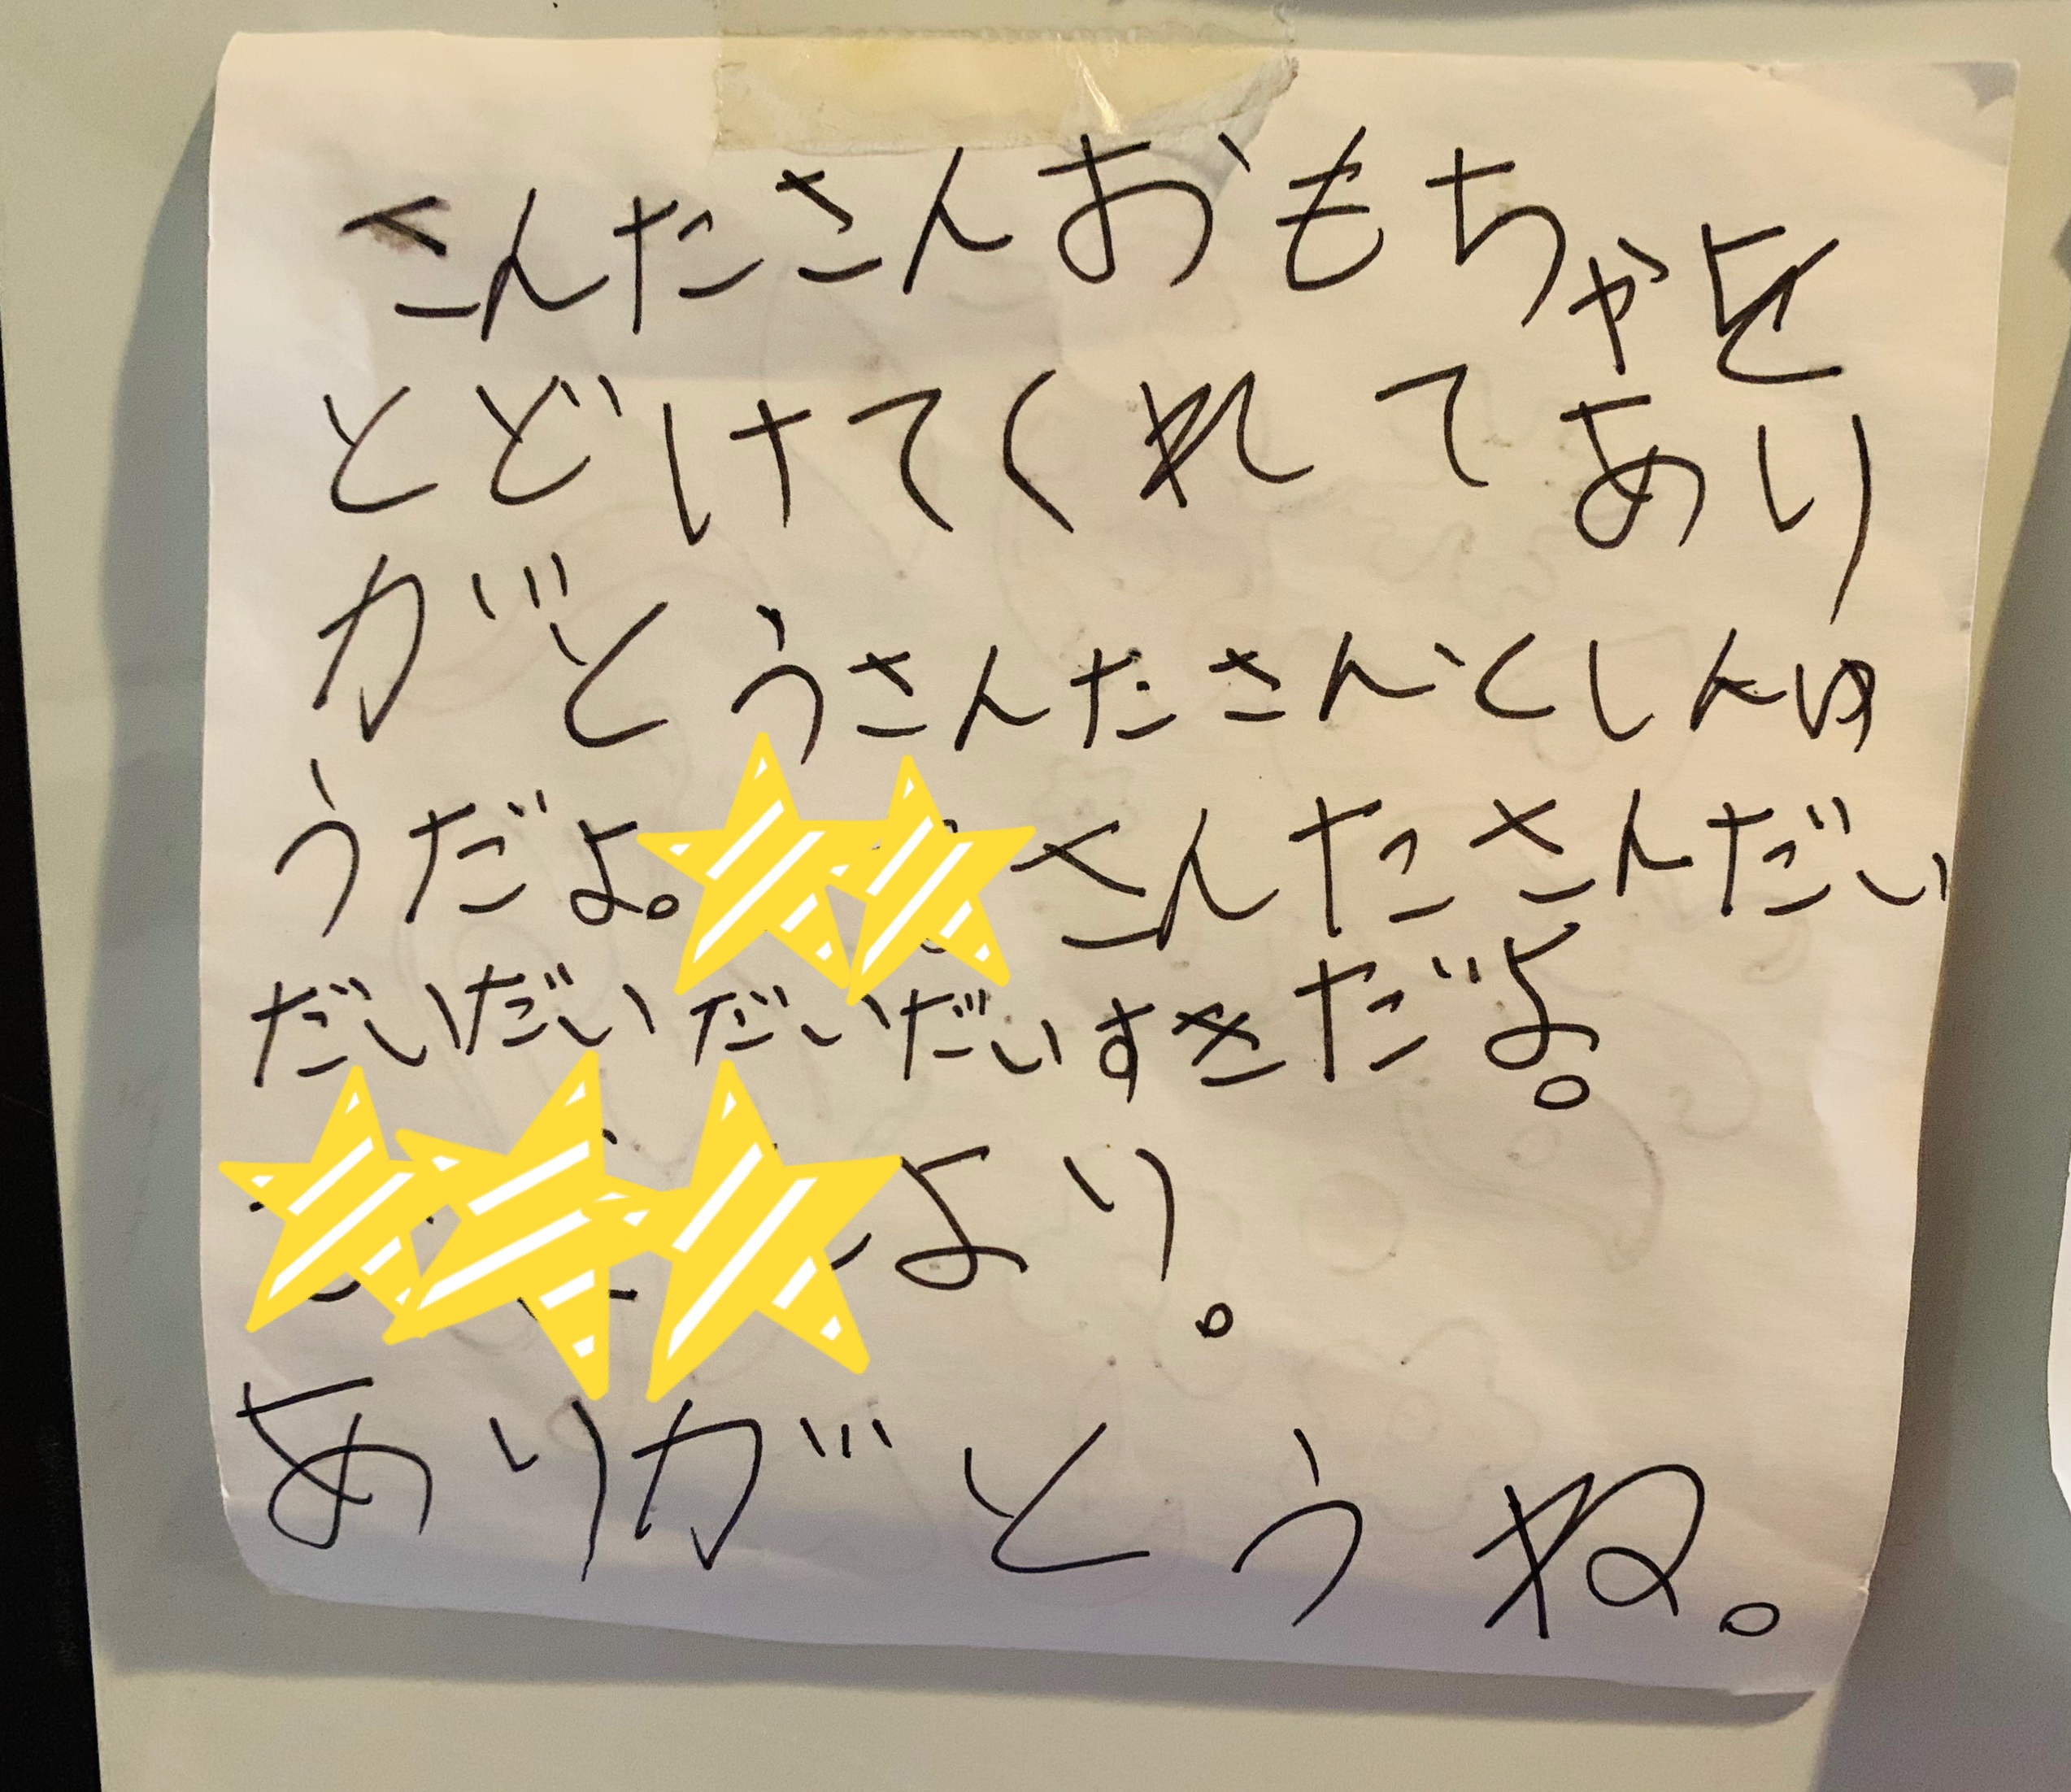 さんたさんおもちゃを
とどけてくれてあり
がとうさんたさんとしんゆ
うだよ。さんたさんだい
だいだいだいだいすきだよ。
より。
ありがとうね。